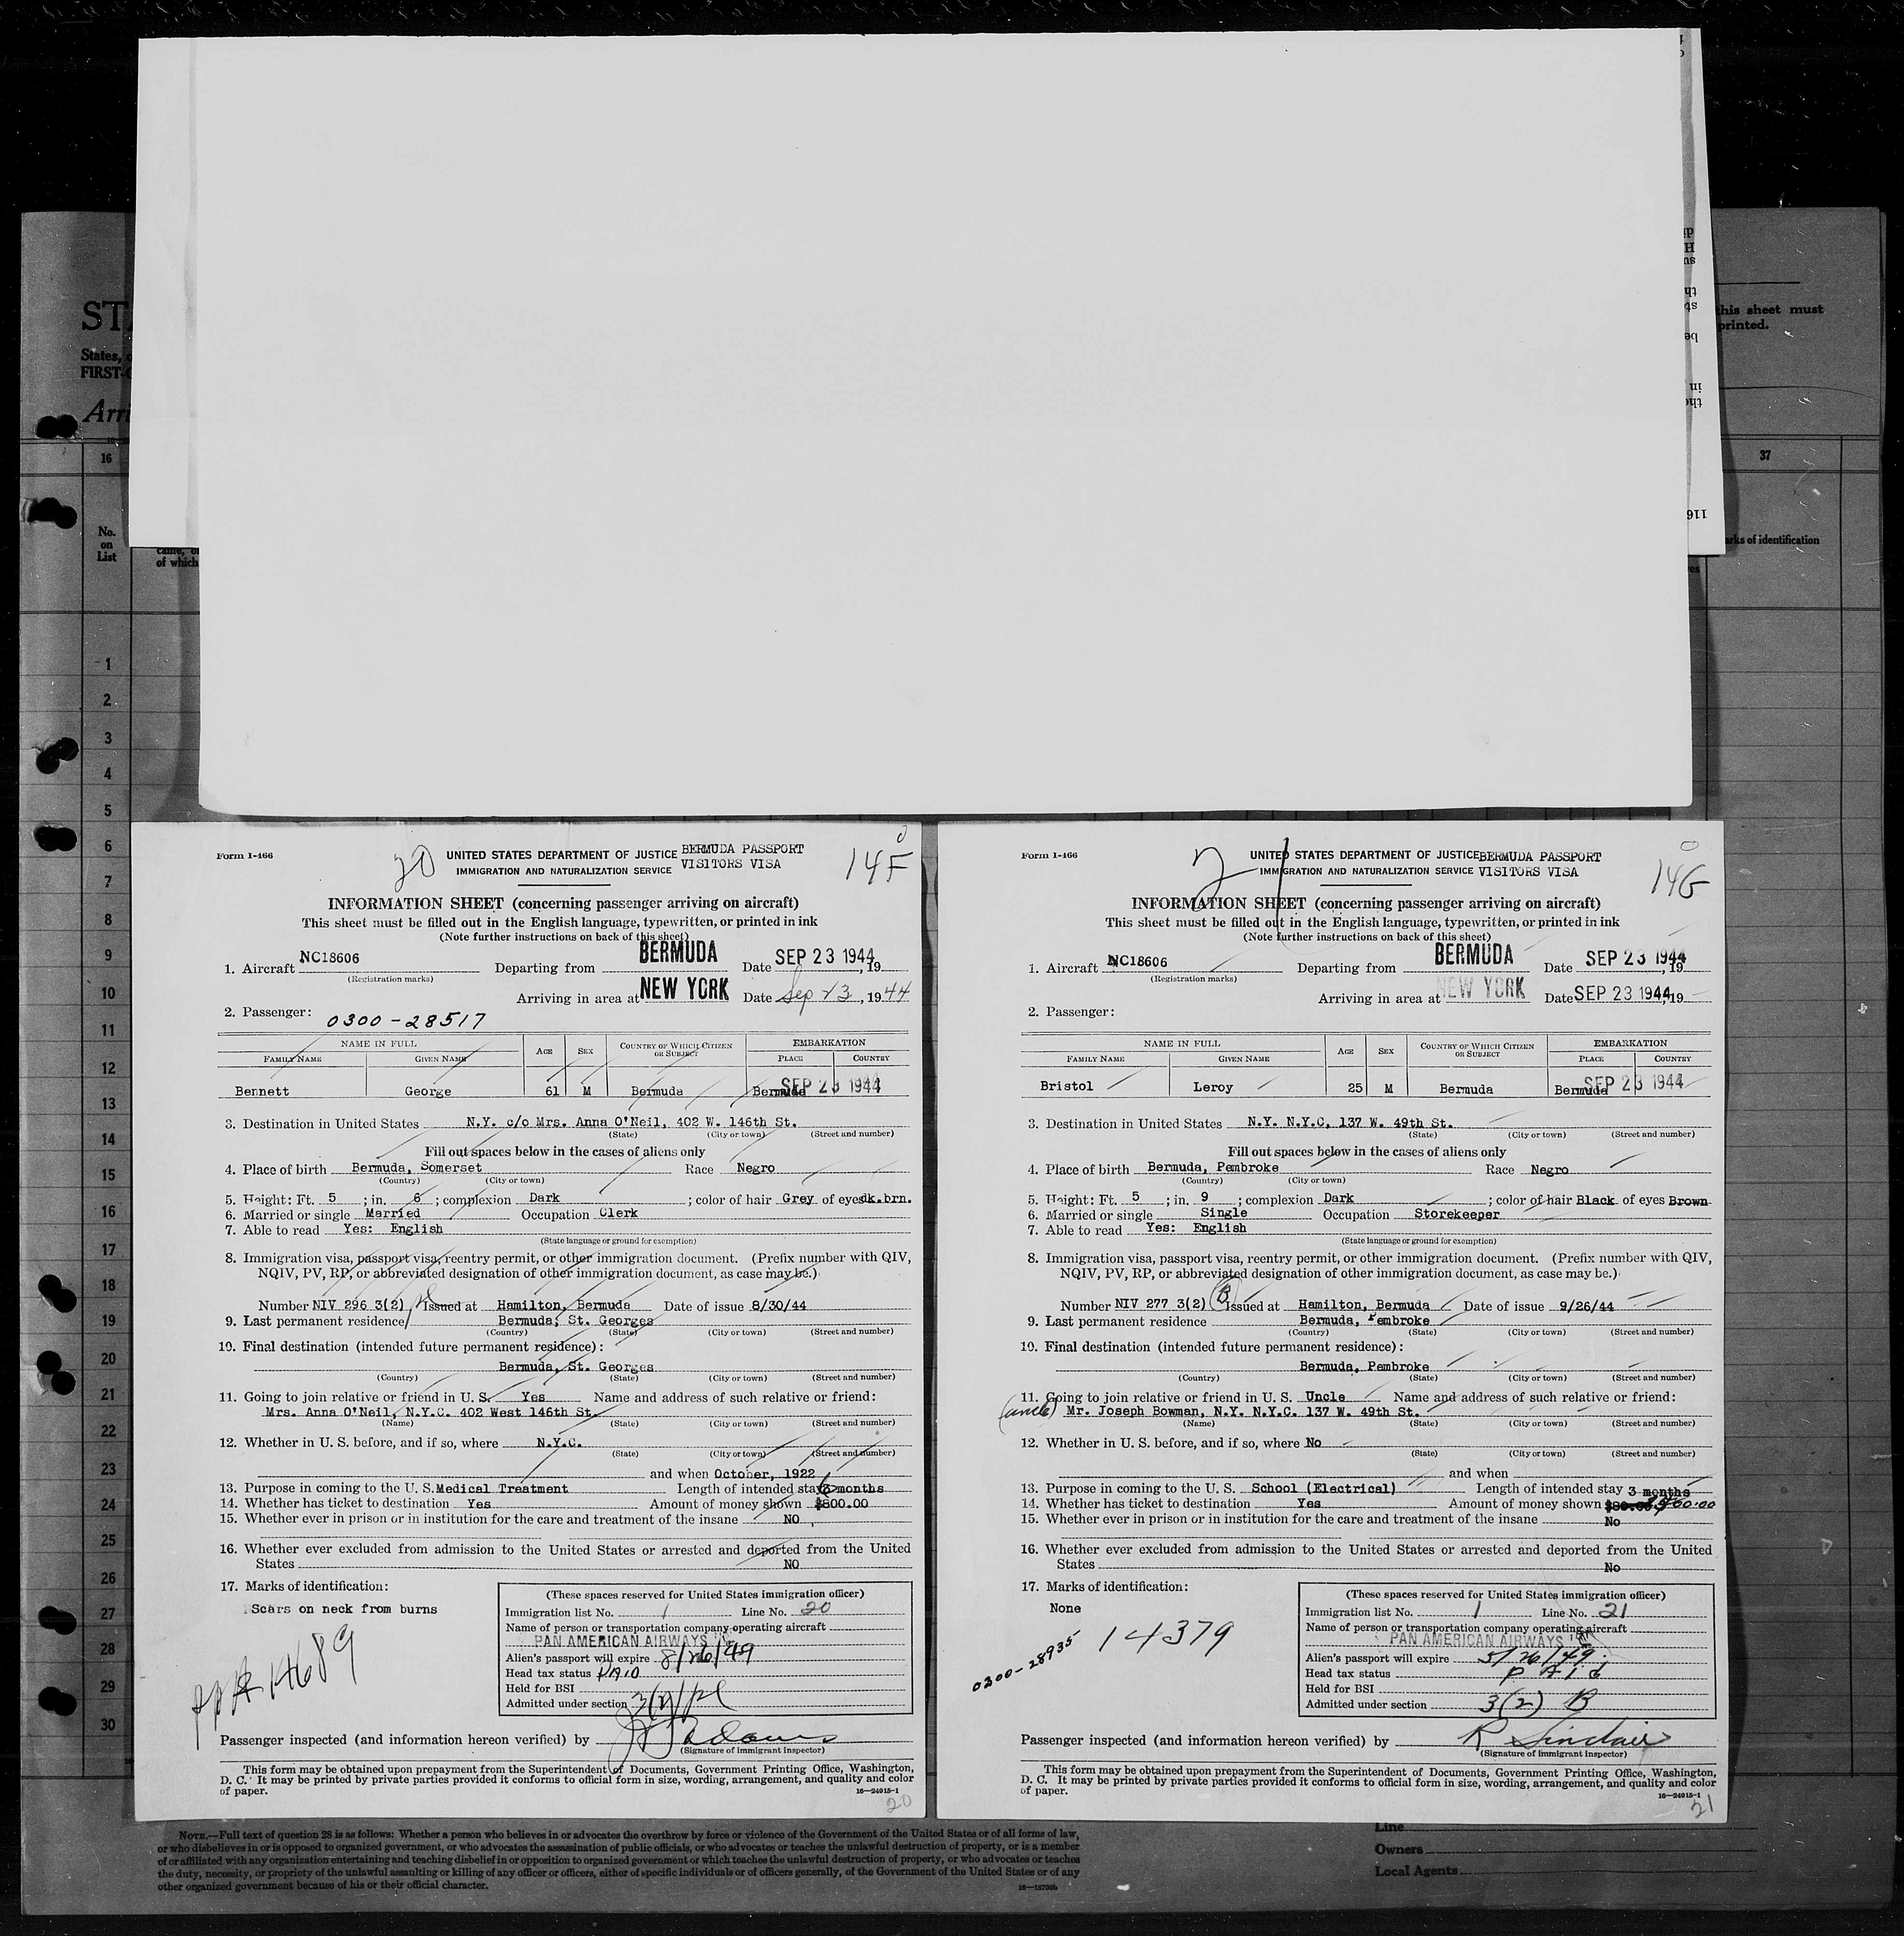 ST
States,
FIRST-
Arri
this sheet must
printed.
16
37
No.
on
List
of which
marks of identification
116
1
2
3
4
5
6
7
8
9
10
11
12
13
14
15
16
17
18
19
20
21
22
23
24
25
26
27
28
29
30
Form I-466
20
UNITED STATES DEPARTMENT OF JUSTICE BERMUDA PASSPORT
IMMIGRATION AND NATURALIZATION SERVICE VISITORS VISA
14F
INFORMATION SHEET (concerning passenger arriving on aircraft)
This sheet must be filled out in the English language, typewritten, or printed in ink
(Note further instructions on back of this sheet)
1. Aircraft NC18606 Departing from BERMUDA Date SEP 23 1944, 19
(Registration marks)
Arriving in area at NEW YORK Date Sep 23, 1944
2. Passenger: 0300-28517
NAME IN FULL AGE SEX COUNTRY OF WHICH CITIZEN OR SUBJECT EMBARKATION
FAMILY NAME GIVEN NAME PLACE COUNTRY
Bennett George 61 M Bermuda Bermuda SEP 23 1944
3. Destination in United States N.Y. c/o Mrs. Anna O'Neil, 402 W. 146th St.
(State) (City or town) (Street and number)
Fill out spaces below in the cases of aliens only
4. Place of birth Bermuda, Somerset Race Negro
(Country) (City or town)
5. Height: Ft. 5 ; in. 6 ; complexion Dark ; color of hair Grey of eyes dk.brn.
6. Married or single Married Occupation Clerk
7. Able to read Yes: English
(State language or ground for exemption)
8. Immigration visa, passport visa, reentry permit, or other immigration document. (Prefix number with QIV,
NQIV, PV, RP, or abbreviated designation of other immigration document, as case may be.)
Number NIV 296 3(2) Issued at Hamilton, Bermuda Date of issue 8/30/44
9. Last permanent residence Bermuda, St. Georges
(Country) (State) (City or town) (Street and number)
10. Final destination (intended future permanent residence):
Bermuda, St. Georges
(Country) (State) (City or town) (Street and number)
11. Going to join relative or friend in U. S. Yes Name and address of such relative or friend:
Mrs. Anna O'Neil, N.Y.C. 402 West 146th St.
(Name) (State) (City or town) (Street and number)
12. Whether in U. S. before, and if so, where N.Y.C.
(State) (City or town) (Street and number)
and when October, 1922
13. Purpose in coming to the U. S. Medical Treatment Length of intended stay 3 months
14. Whether has ticket to destination Yes Amount of money shown $600.00
15. Whether ever in prison or in institution for the care and treatment of the insane NO
16. Whether ever excluded from admission to the United States or arrested and deported from the United
States NO
17. Marks of identification:
Scars on neck from burns
14689
(These spaces reserved for United States immigration officer)
Immigration list No. 1 Line No. 20
Name of person or transportation company operating aircraft
PAN AMERICAN AIRWAYS INC
Alien's passport will expire 8/26/49
Head tax status PAID
Held for BSI
Admitted under section 3(2)
Passenger inspected (and information hereon verified) by J Adams
(Signature of immigrant inspector)
This form may be obtained upon prepayment from the Superintendent of Documents, Government Printing Office, Washington,
D. C. It may be printed by private parties provided it conforms to official form in size, wording, arrangement, and quality and color
of paper.
16—24915-1
20
Form I-466
21
UNITED STATES DEPARTMENT OF JUSTICE BERMUDA PASSPORT
IMMIGRATION AND NATURALIZATION SERVICE VISITORS VISA
14G
INFORMATION SHEET (concerning passenger arriving on aircraft)
This sheet must be filled out in the English language, typewritten, or printed in ink
(Note further instructions on back of this sheet)
1. Aircraft NC18606 Departing from BERMUDA Date SEP 23 1944, 19
(Registration marks)
Arriving in area at NEW YORK Date SEP 23 1944, 19
2. Passenger:
NAME IN FULL AGE SEX COUNTRY OF WHICH CITIZEN OR SUBJECT EMBARKATION
FAMILY NAME GIVEN NAME PLACE COUNTRY
Bristol Leroy 25 M Bermuda Bermuda SEP 23 1944
3. Destination in United States N.Y. N.Y.C. 137 W. 49th St.
(State) (City or town) (Street and number)
Fill out spaces below in the cases of aliens only
4. Place of birth Bermuda, Pembroke Race Negro
(Country) (City or town)
5. Height: Ft. 5 ; in. 9 ; complexion Dark ; color of hair Black of eyes Brown
6. Married or single Single Occupation Storekeeper
7. Able to read Yes: English
(State language or ground for exemption)
8. Immigration visa, passport visa, reentry permit, or other immigration document. (Prefix number with QIV,
NQIV, PV, RP, or abbreviated designation of other immigration document, as case may be.)
Number NIV 277 3(2) B Issued at Hamilton, Bermuda Date of issue 9/26/44
9. Last permanent residence Bermuda, Pembroke
(Country) (State) (City or town) (Street and number)
10. Final destination (intended future permanent residence):
Bermuda, Pembroke
(Country) (State) (City or town) (Street and number)
11. Going to join relative or friend in U. S. Uncle Name and address of such relative or friend:
(uncle) Mr. Joseph Bowman, N.Y. N.Y.C. 137 W. 49th St.
(Name) (State) (City or town) (Street and number)
12. Whether in U. S. before, and if so, where No
(State) (City or town) (Street and number)
and when
13. Purpose in coming to the U. S. School (Electrical) Length of intended stay 3 months
14. Whether has ticket to destination Yes Amount of money shown $80.00
15. Whether ever in prison or in institution for the care and treatment of the insane No
16. Whether ever excluded from admission to the United States or arrested and deported from the United
States No
17. Marks of identification:
None
0300-28935
14379
(These spaces reserved for United States immigration officer)
Immigration list No. 1 Line No. 21
Name of person or transportation company operating aircraft
PAN AMERICAN AIRWAYS INC
Alien's passport will expire 5/26/49
Head tax status Paid
Held for BSI
Admitted under section 3(2) B
Passenger inspected (and information hereon verified) by R Sinclair
(Signature of immigrant inspector)
This form may be obtained upon prepayment from the Superintendent of Documents, Government Printing Office, Washington,
D. C. It may be printed by private parties provided it conforms to official form in size, wording, arrangement, and quality and color
of paper.
16—24915-1
21
NOTE.—Full text of question 28 is as follows: Whether a person who believes in or advocates the overthrow by force or violence of the Government of the United States or of all forms of law,
or who disbelieves in or is opposed to organized government, or who advocates the assassination of public officials, or who advocates or teaches the unlawful destruction of property, or is a member
of or affiliated with any organization entertaining and teaching disbelief in or opposition to organized government or which teaches the unlawful destruction of property, or who advocates or teaches
the duty, necessity, or propriety of the unlawful assaulting or killing of any officer or officers, either of specific individuals or of officers generally, of the Government of the United States or of any
other organized government because of his or their official character.
Line
Owners
Local Agents